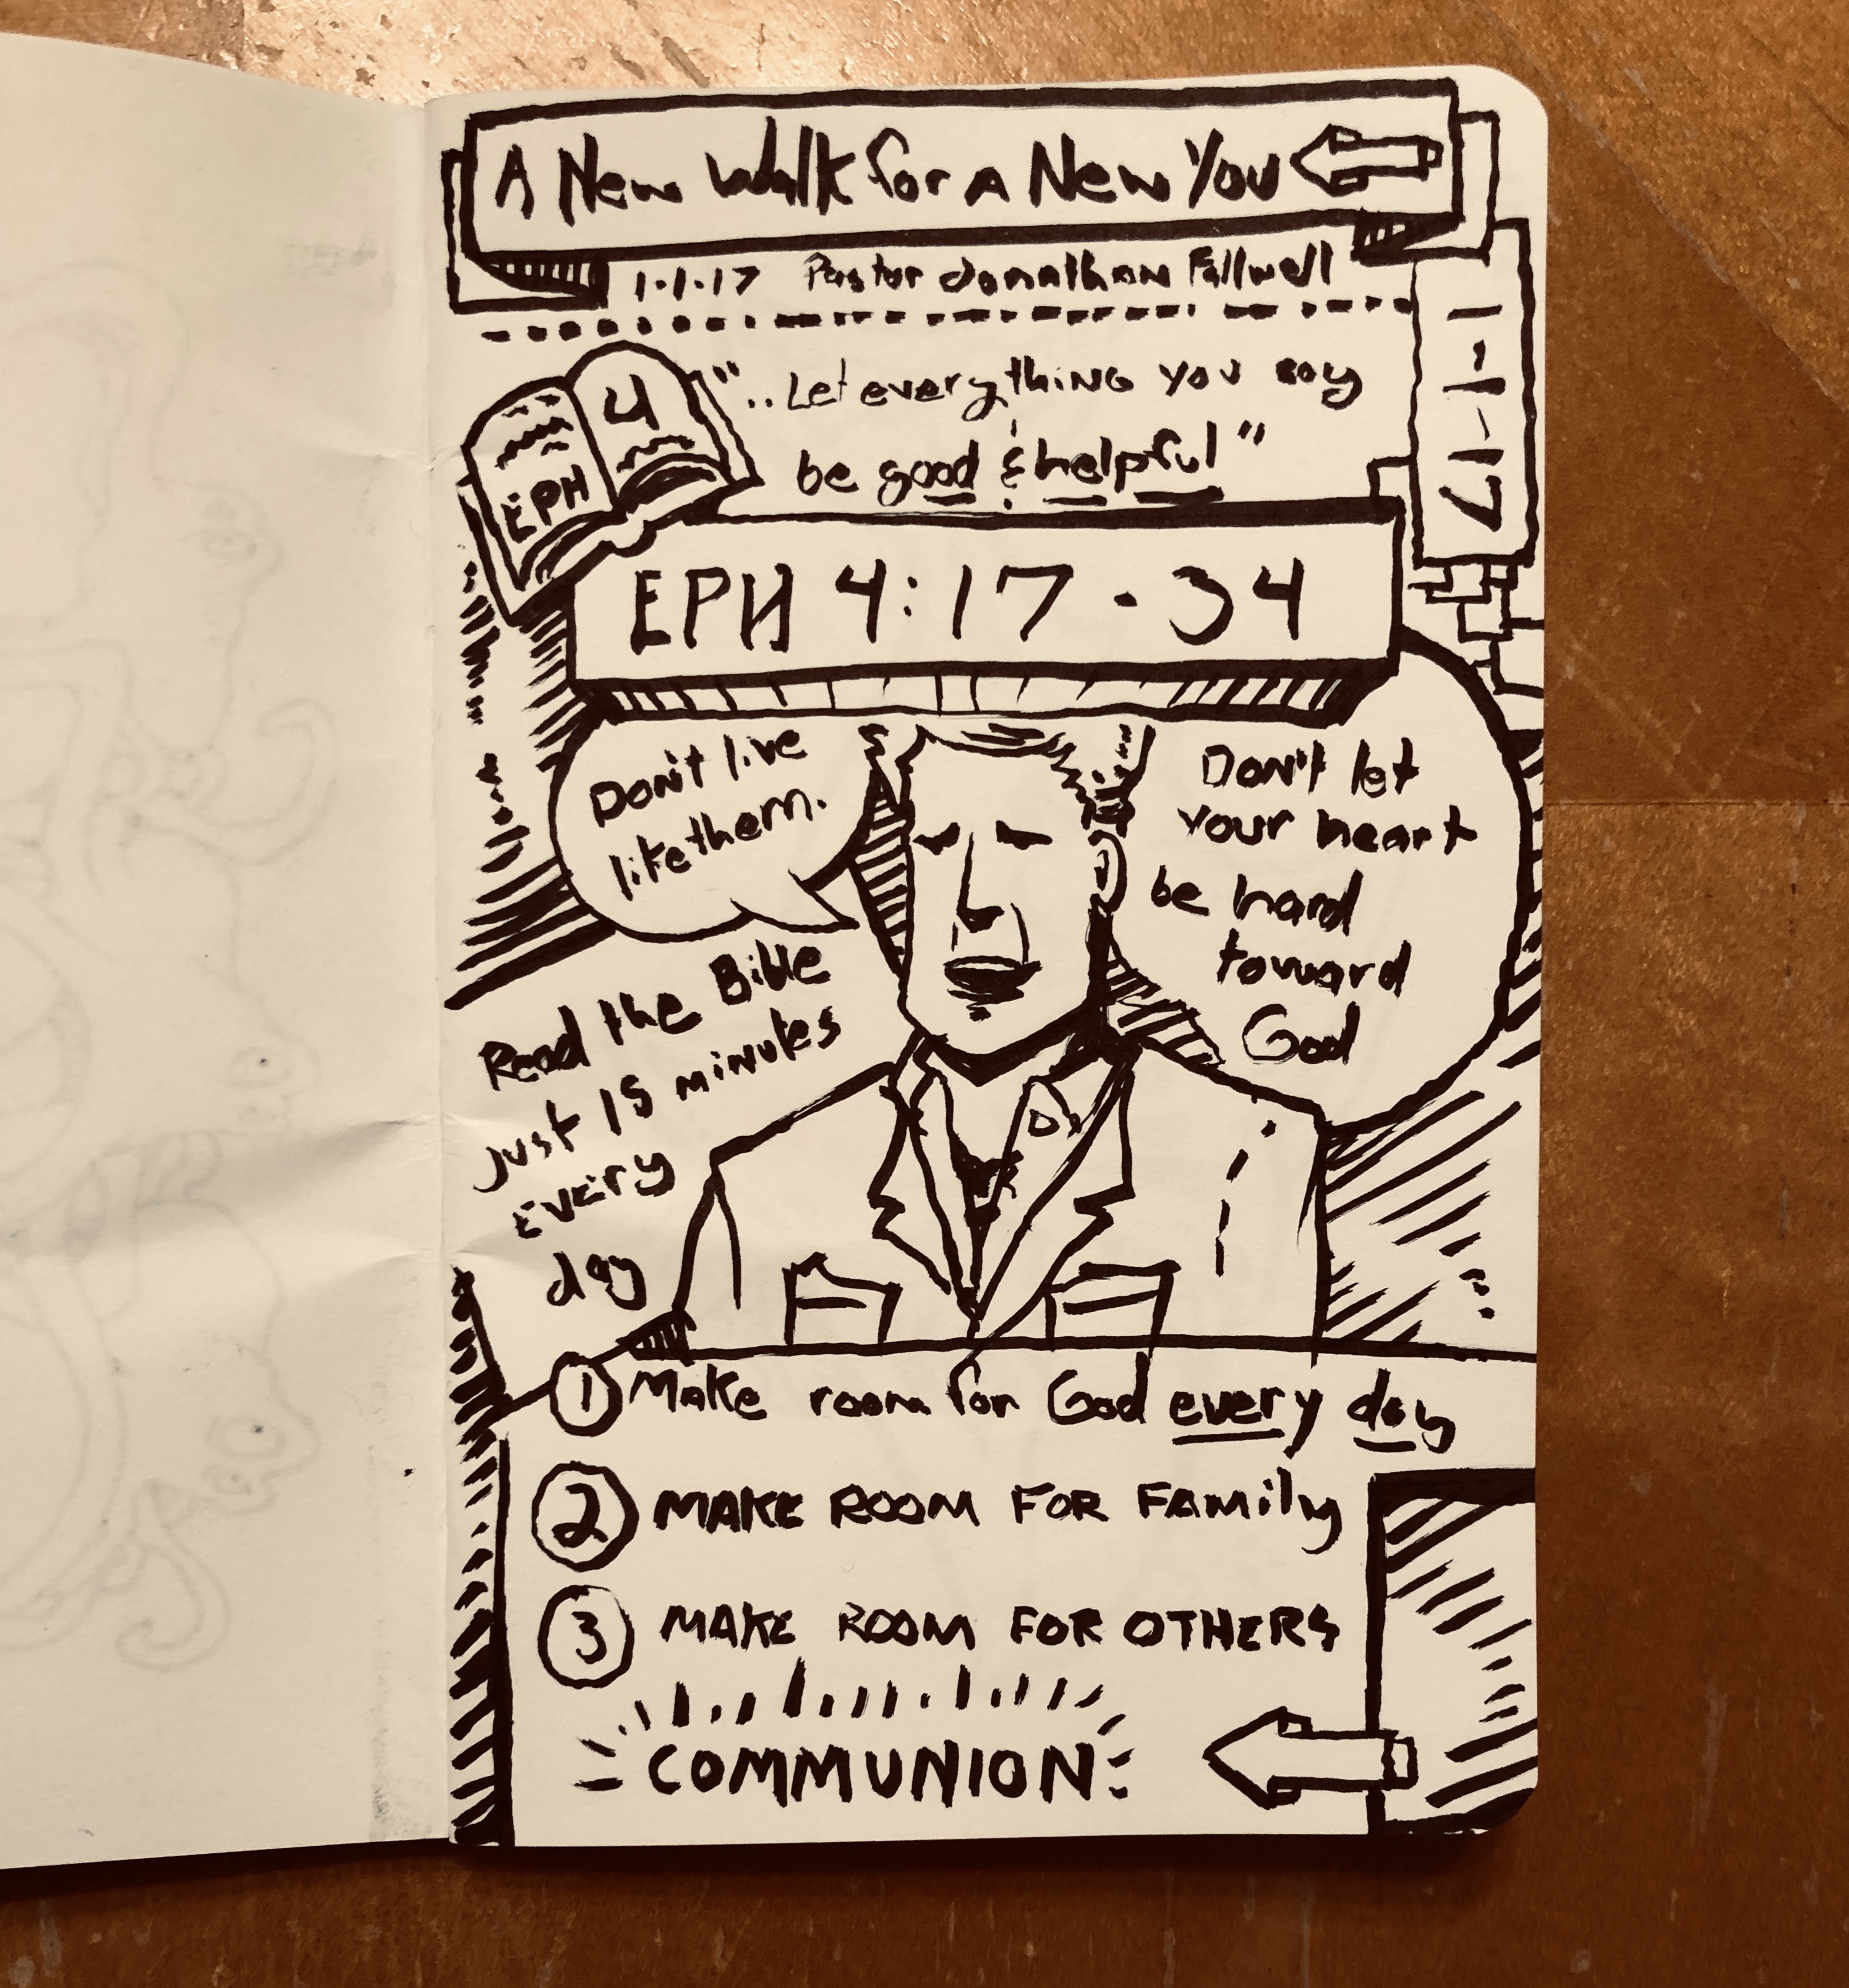 A New Walk for a New You
1.1.17 Pastor Jonathan Fallwell
1-1-17
4
EPH
"..Let everything you say
be good & helpful"
EPH 4:17-34
Don't live
like them.
Don't let
your heart
be hard
toward
God
Read the Bible
just 15 minutes
every
day
1 Make room for God every day
2 MAKE ROOM FOR FAMily
3 MAKE ROOM FOR OTHERS
COMMUNION